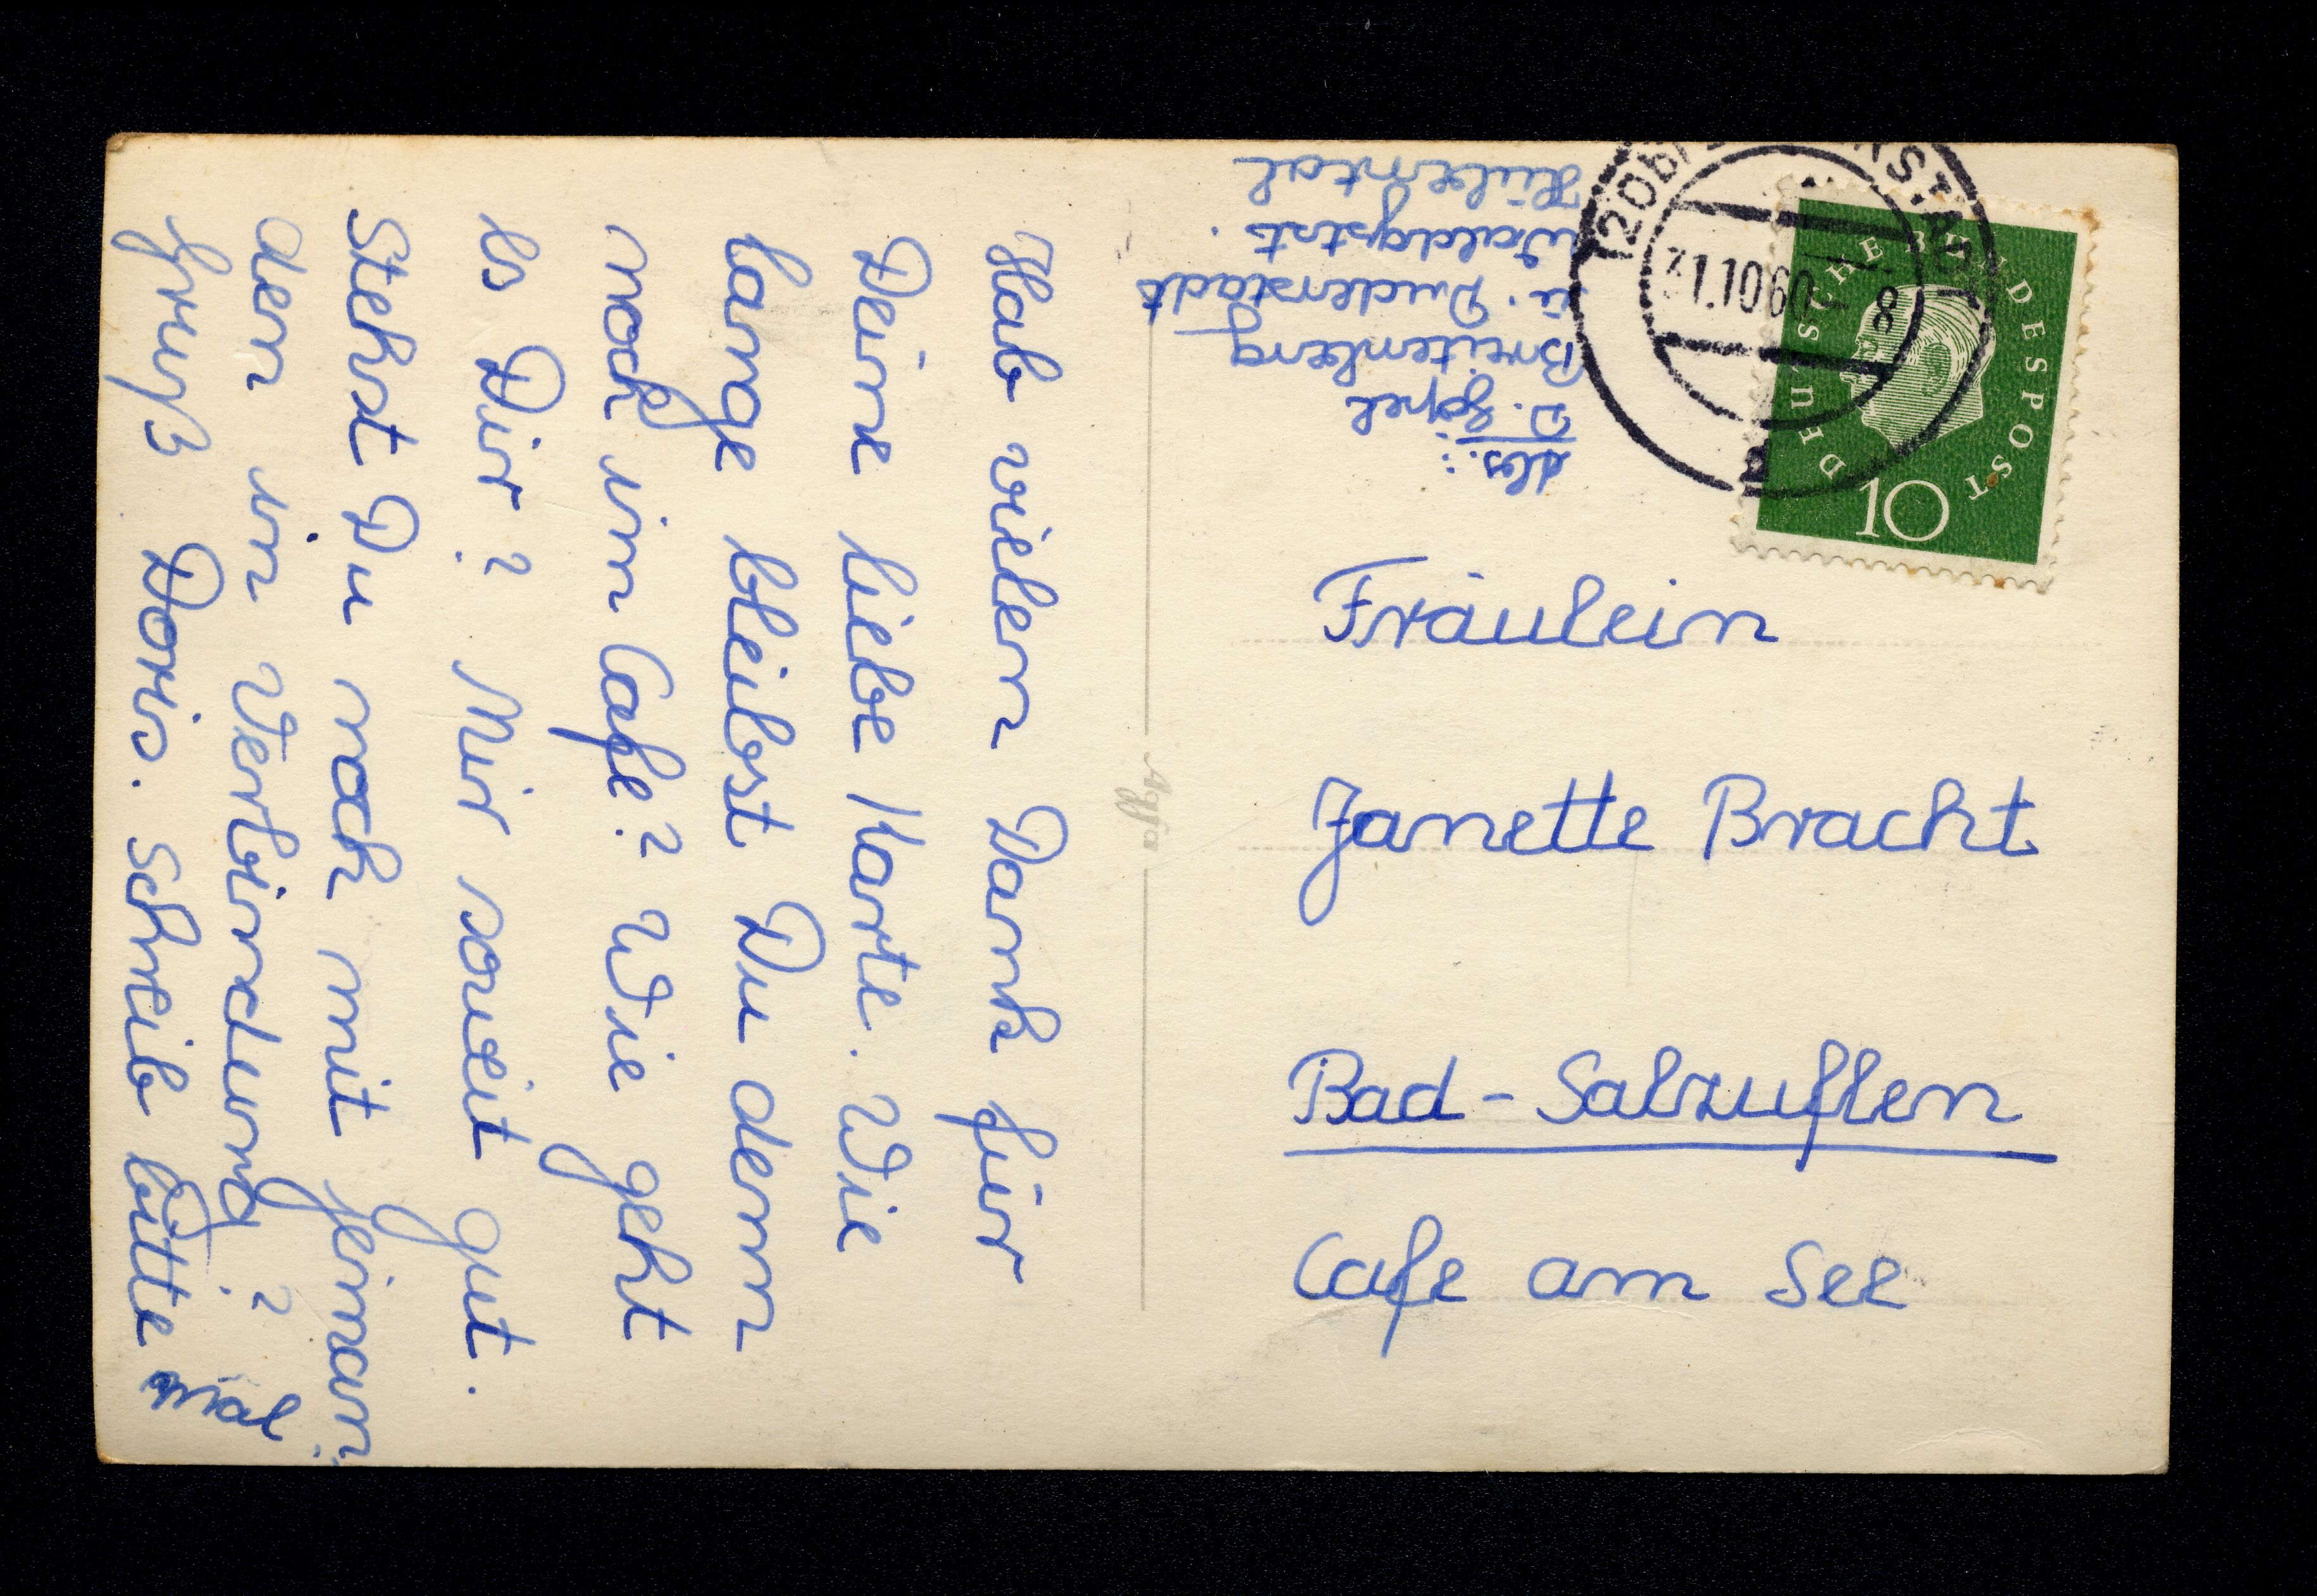 Hab vielen Dank für
Deine liebe Karte. Wie
lange bleibst Du denn
noch im Cafe? Wie geht
es Dir? Mir soweit gut.
Stehst Du noch mit jeman
den in Verbindung?
Gruß Doris. Schreib bitte mal
Abs.:
D. Göpel
Breitenberg
ü. Duderstadt
Waldgstst.
Hübental
(20b)
31.10.60 - 8
DEUTSCHE BUNDESPOST
10
Agfa
Fräulein
Janette Bracht
Bad-Salzuflen
Cafe am See